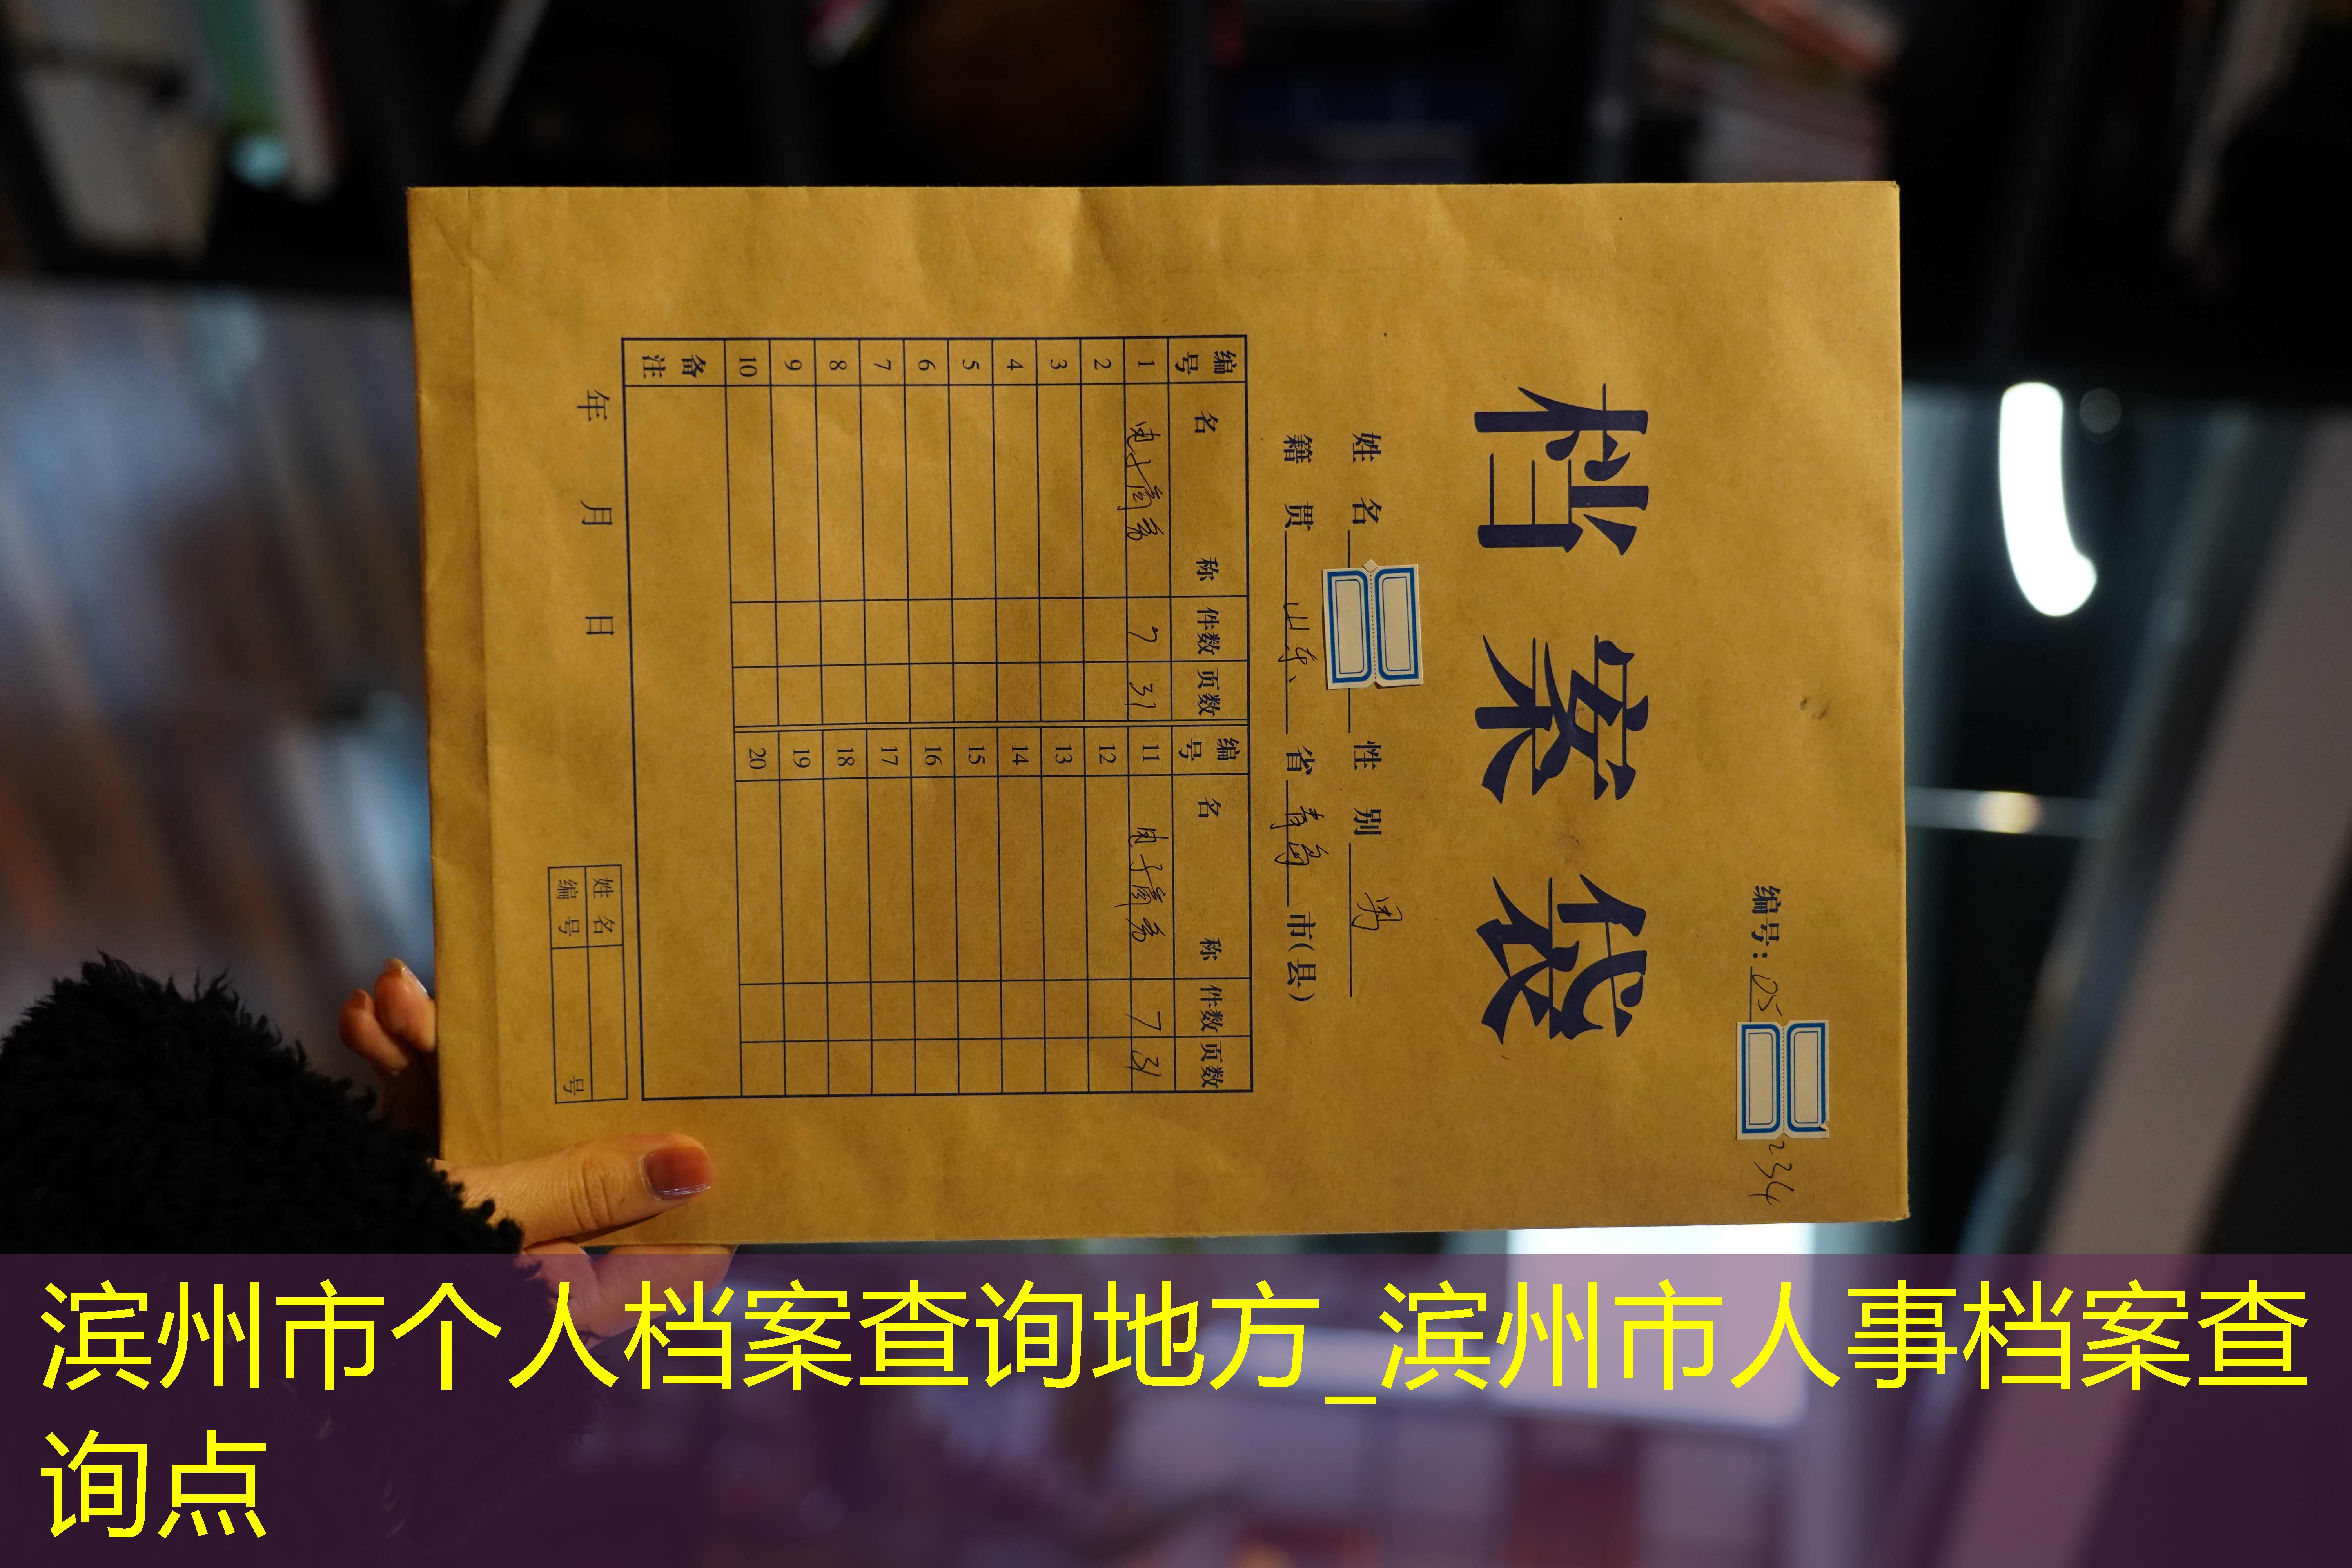 编号：05 234
档案袋
姓名 性别 男
籍贯 山东 省 青岛 市(县)
编号 名称 件数 页数 编号 名称 件数 页数
1 电子商务 7 31 11 电子商务 7 31
2 12
3 13
4 14
5 15
6 16
7 17
8 18
9 19
10 20
备注
年 月 日
姓名
编号 号
滨州市个人档案查询地方_滨州市人事档案查
询点